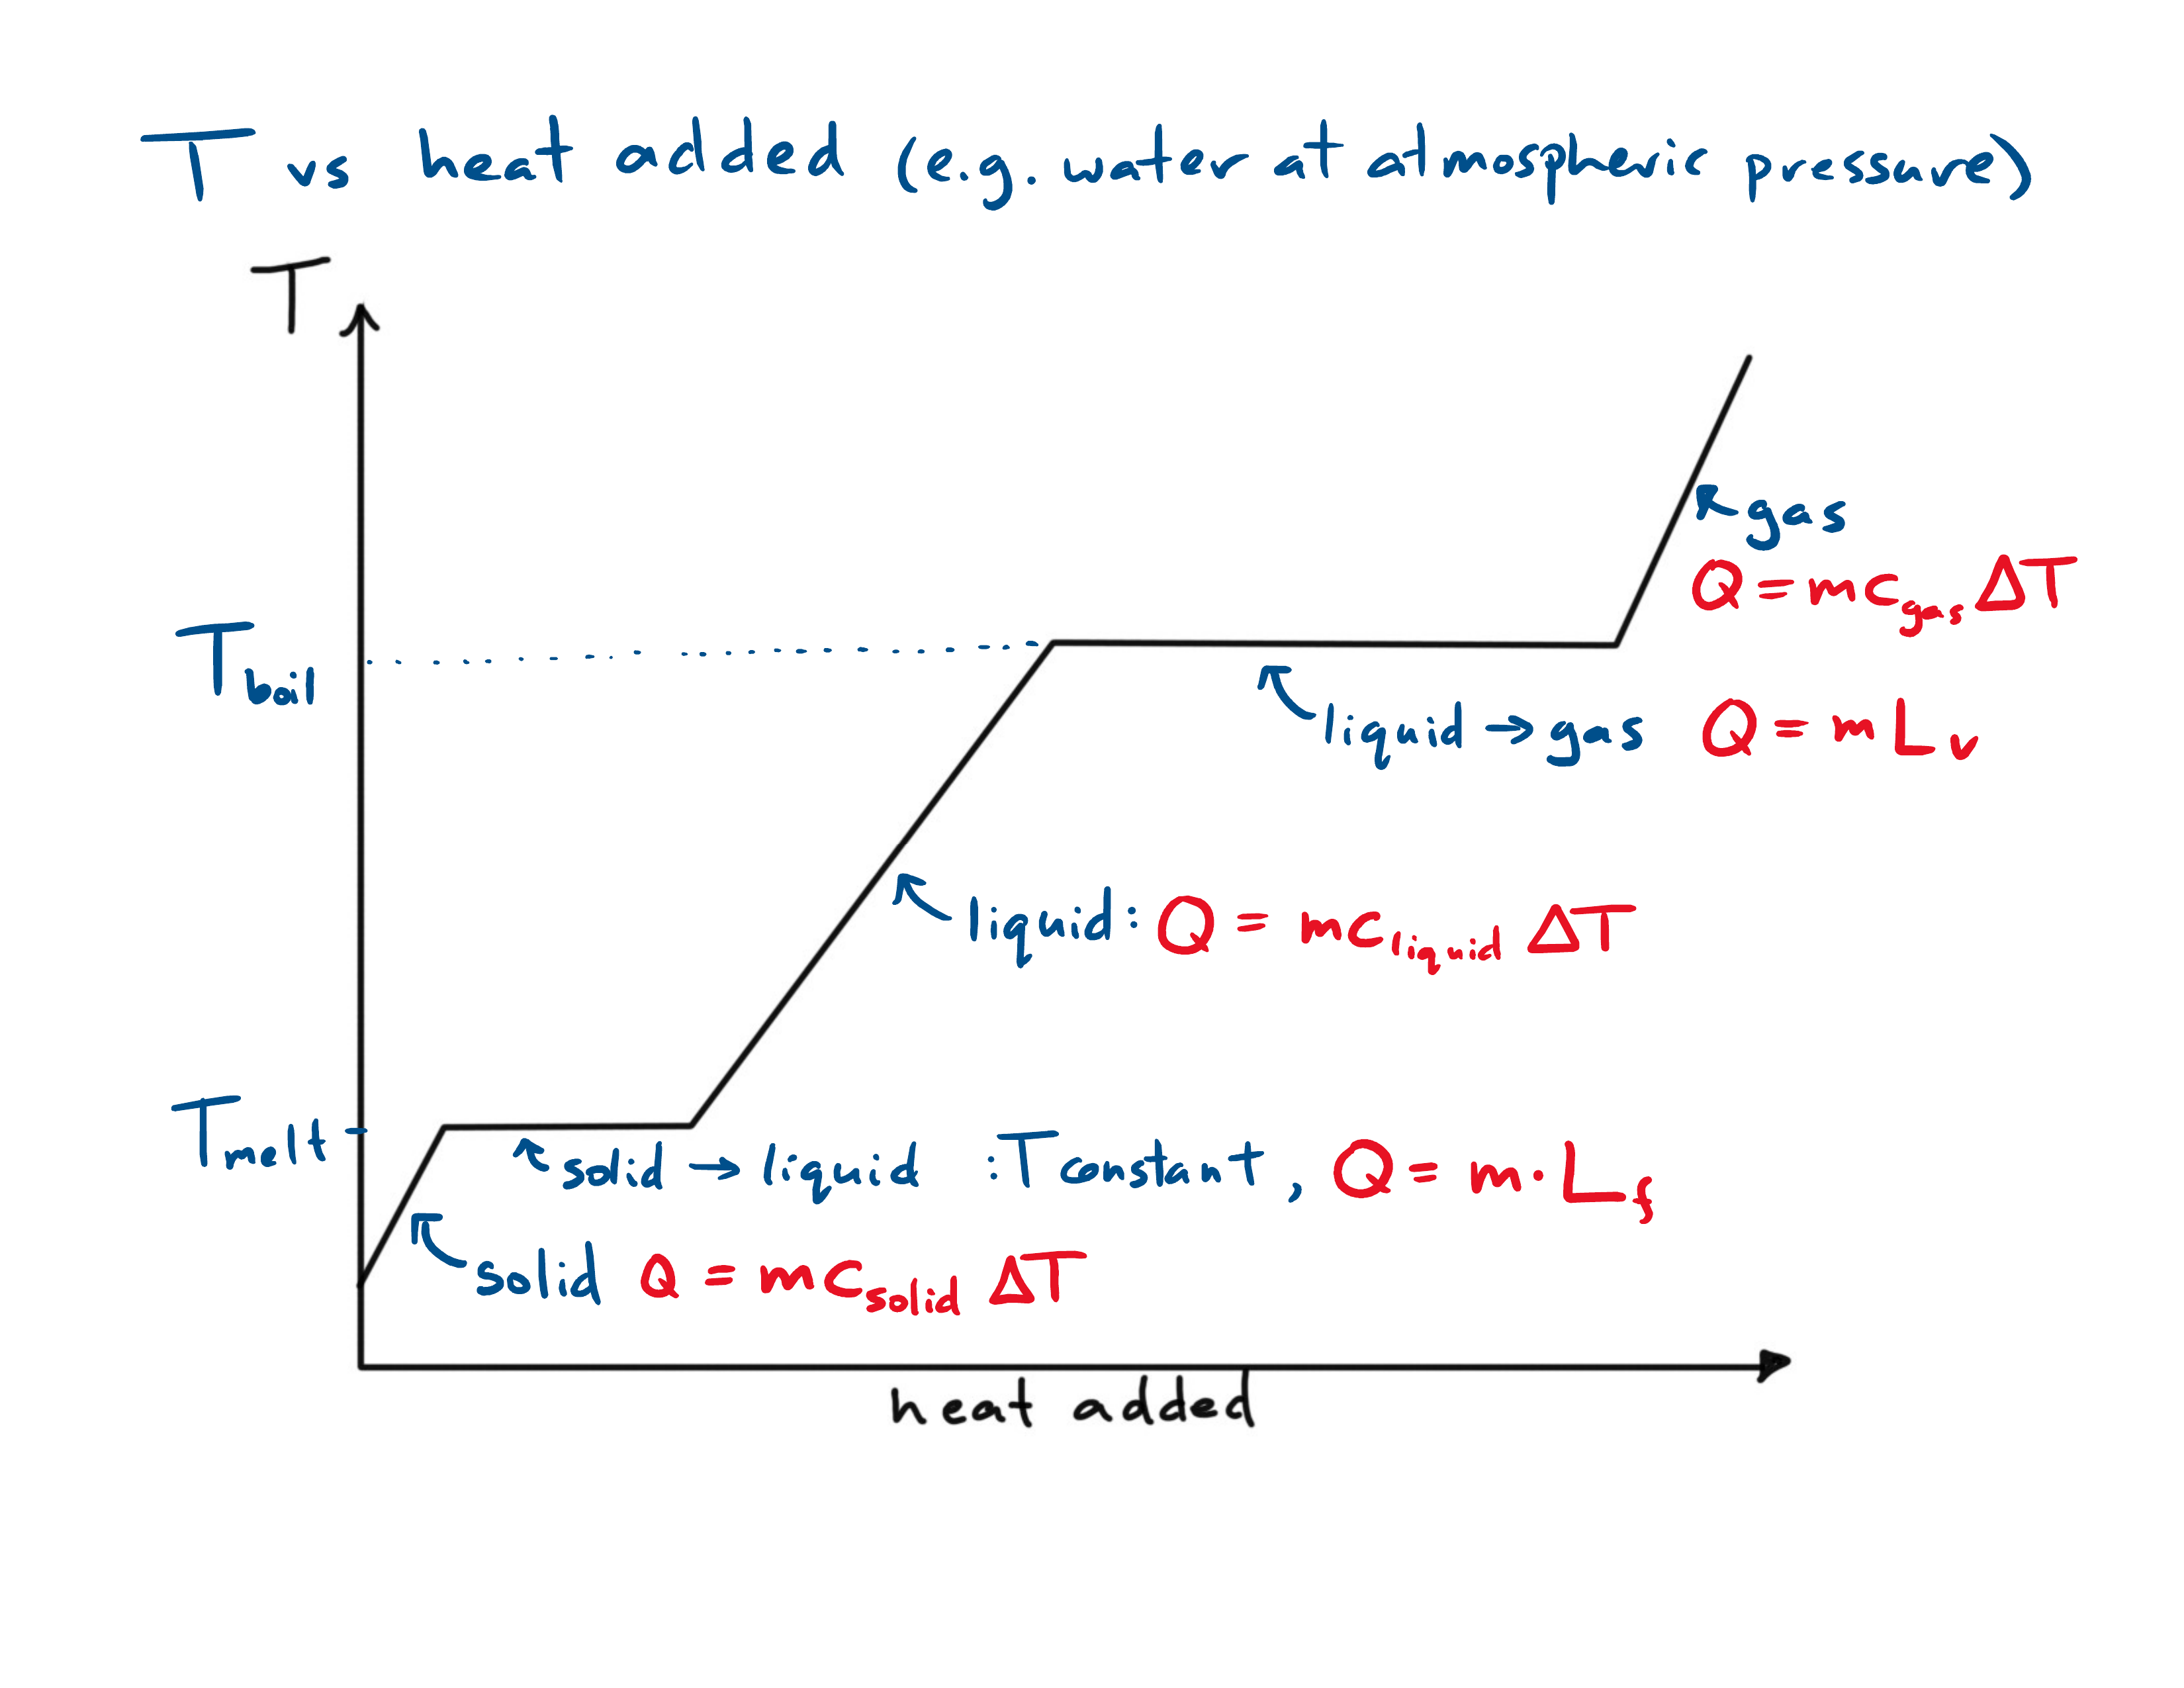 T vs heat added (e.g. water at atmospheric pressure)
T
gas
Q = mc_gas ΔT
T_boil
liquid → gas Q = m L_v
liquid: Q = mc_liquid ΔT
T_melt
solid → liquid : T constant, Q = m · L_f
solid Q = mc_solid ΔT
heat added